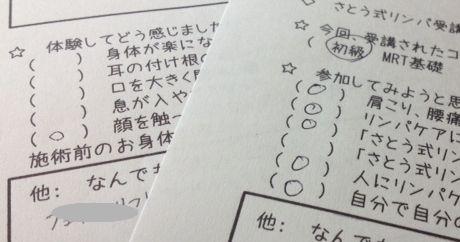 ☆ 体験してどう感じました
( ) 身体が楽にな
( ) 耳の付け根の
( ) 口を大きく
( ) 息が入や
(○) 顔を触っ
施術前のお身体
他: なんでも
さとう式リンパ受講
☆ 今回、受講されたコ
(初級) MRT基礎
☆ 参加してみようと思
(○) 肩こり、腰痛
(○) リンパケアに
(○) 「さとう式リン
(○) 「さとう式リン
(○) 人にリンパケ
(○) 自分で自分の
他: なんで